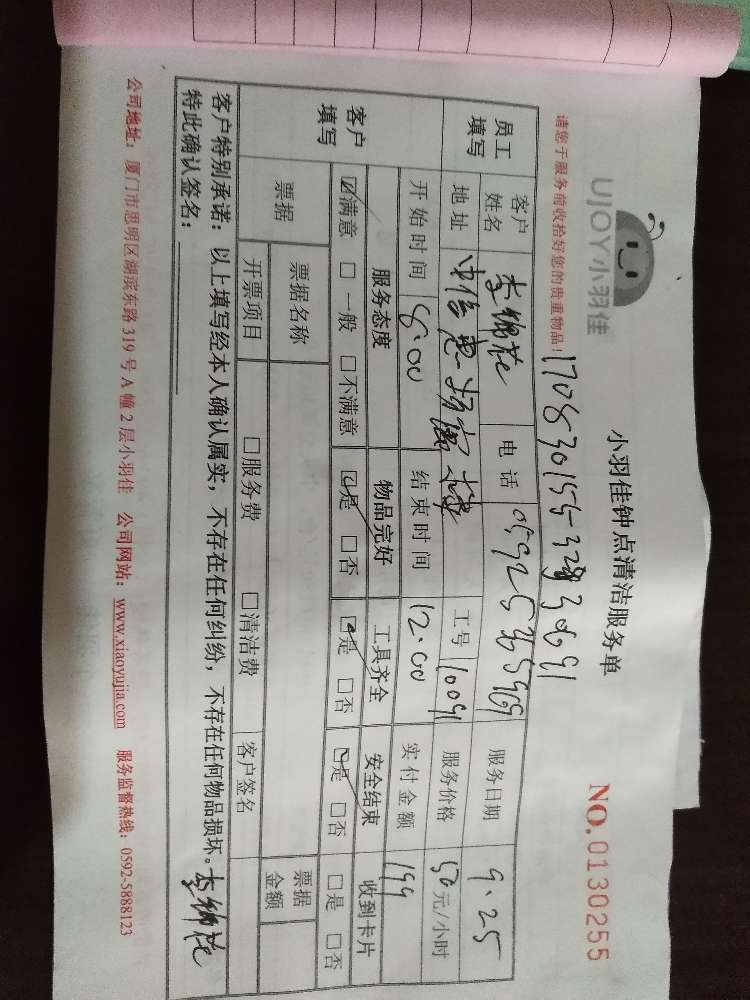 UJOY小羽佳
小羽佳钟点清洁服务单
NO.0130255
请您于服务前收拾好您的贵重物品！
员工填写 客户姓名 李 花 电话 服务日期 9.25
地址 工号 10091 服务价格 50元/小时
开始时间 8:00 结束时间 12:00 实付金额 199
客户填写 服务态度 物品完好 工具齐全 安全结束 收到卡片
☑满意 □一般 □不满意 ☑是 □否 ☑是 □否 ☑是 □否 □是 □否
票据 票据名称 票据金额
开票项目 □服务费 □清洁费 客户签名
客户特别承诺：以上填写经本人确认属实，不存在任何纠纷，不存在任何物品损坏。李 花
特此确认签名：
公司地址：厦门市思明区湖滨东路319号A幢2层小羽佳 公司网站：www.xiaoyujia.com 服务监督热线：0592-5888123